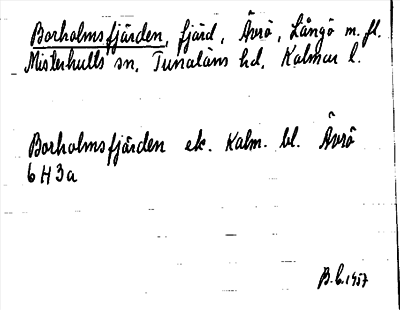 Borholmsfjärden, fjärd, Ävrö, Långö m. fl.
Misterhults sn, Tunaläns hd, Kalmar l.
Borholmsfjärden ek. Kalm. bl. Ävrö
6 H 3 a
B. C. 1957